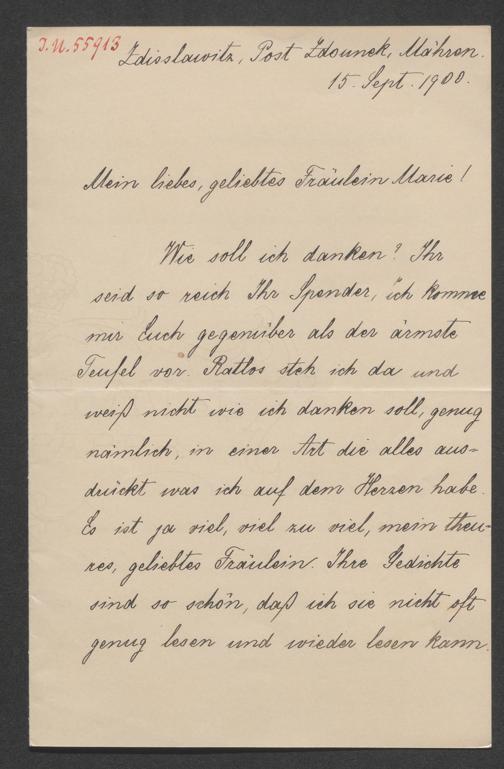 I.N. 55913
Zdisslawitz, Post Zdounek, Mähren.
15. Sept. 1900.
Mein liebes, geliebtes Fräulein Marie!
Wie soll ich danken? Ihr
seid so reich Ihr Spender, ich komme
mir Euch gegenüber als der ärmste
Teufel vor. Ratlos steh ich da und
weiß nicht wie ich danken soll, genug
nämlich, in einer Art die alles aus=
drückt was ich auf dem Herzen habe.
Es ist ja viel, viel zu viel, mein theu-
res, geliebtes Fräulein. Ihre Gedichte
sind so schön, daß ich sie nicht oft
genug lesen und wieder lesen kann.